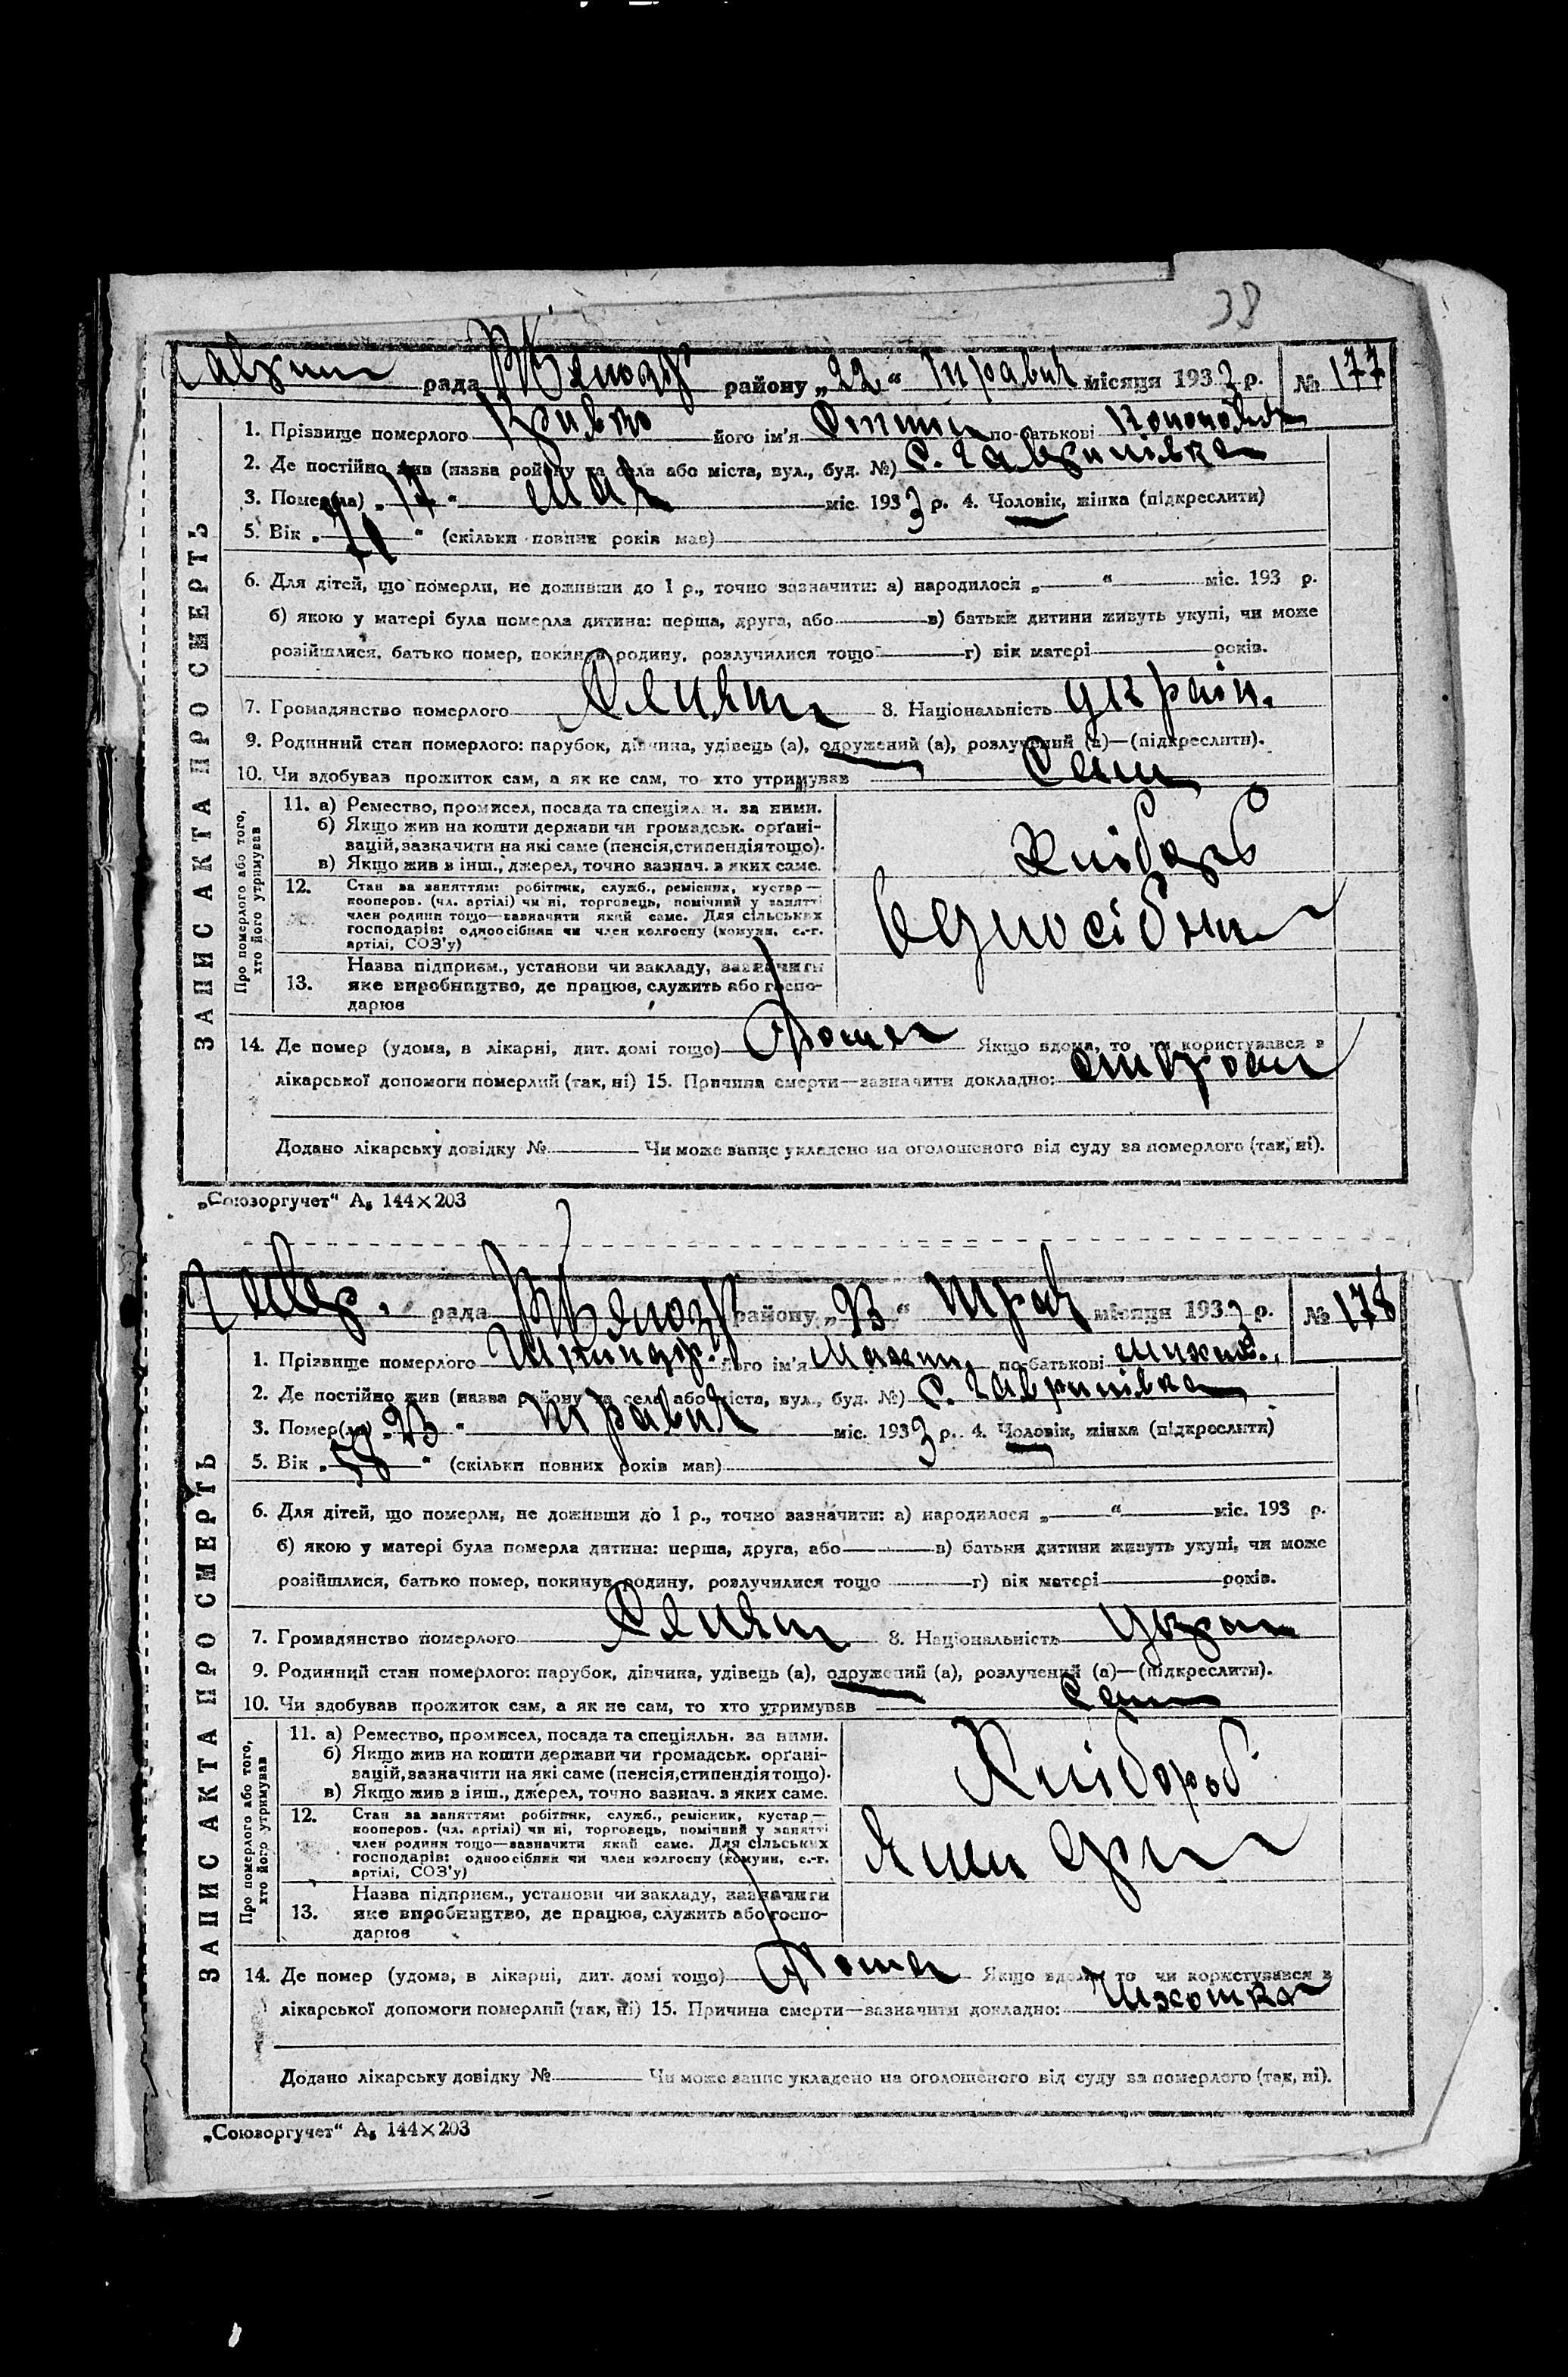 38
рада району „22“ Травня місяця 1933 р. № 177
1. Прізвище померлого Кривко його ім'я по-батькові
2. Де постійно жив (назва району та села або міста, вул., буд. №) с. Гаврилівка
3. Помер(ла) „17“ мая міс. 1933 р. 4. Чоловік, жінка (підкреслити)
5. Вік „71“ (скільки повних років мав)
6. Для дітей, що померли, не доживши до 1 р., точно зазначити: а) народилося „ “ міс. 193 р.
б) якою у матері була померла дитина: перша, друга, або в) батьки дитини живуть укупі, чи може
розійшлися, батько помер, покинув родину, розлучилися тощо г) вік матері років.
7. Громадянство померлого 8. Національність україн.
9. Родинний стан померлого: парубок, дівчина, удівець (а), одружений (а), розлучений (а)—(підкреслити).
10. Чи здобував прожиток сам, а як не сам, то хто утримував Сам
ЗАПИС АКТА ПРО СМЕРТЬ
Про померлого або того, хто його утримував
11. а) Ремество, промисел, посада та спеціяльн. за ними.
б) Якщо жив на кошти держави чи громадськ. орґані-
зацій, зазначити на які саме (пенсія, стипендія тощо).
в) Якщо жив з інш., джерел, точно зазнач. з яких саме.
Хлібороб
12. Стан за заняттям: робітник, служб., ремісник, кустар—
кооперов. (чл. артілі) чи ні, торговець, помічний у занятті
член родини тощо—зазначити який саме. Для сільських
господарів: одноосібник чи член колгоспу (комуни, с.-г.
артілі, СОЗ'у)
Одноосібник
13. Назва підприєм., установи чи закладу, зазначити
яке виробництво, де працює, служить або госпо-
дарює
14. Де помер (удома, в лікарні, дит. домі тощо) Дома Якщо вдома, то чи користувався з
лікарської допомоги померлий (так, ні) 15. Причина смерти—зазначити докладно:
Додано лікарську довідку № Чи може запис укладено на оголошеного від суду за померлого (так, ні).
„Союзоргучет“ А₅ 144×203
Гавр. рада району „23“ Трав місяця 1933 р. № 178
1. Прізвище померлого його ім'я по-батькові
2. Де постійно жив (назва району та села або міста, вул., буд. №) с. Гаврилівка
3. Помер(ла) „23“ травня міс. 1933 р. 4. Чоловік, жінка (підкреслити)
5. Вік „58“ (скільки повних років мав)
6. Для дітей, що померли, не доживши до 1 р., точно зазначити: а) народилося „ “ міс. 193 р.
б) якою у матері була померла дитина: перша, друга, або в) батьки дитини живуть укупі, чи може
розійшлися, батько помер, покинув родину, розлучилися тощо г) вік матері років.
7. Громадянство померлого 8. Національність
9. Родинний стан померлого: парубок, дівчина, удівець (а), одружений (а), розлучений (а)—(підкреслити).
10. Чи здобував прожиток сам, а як не сам, то хто утримував Сам
ЗАПИС АКТА ПРО СМЕРТЬ
Про померлого або того, хто його утримував
11. а) Ремество, промисел, посада та спеціяльн. за ними.
б) Якщо жив на кошти держави чи громадськ. орґані-
зацій, зазначити на які саме (пенсія, стипендія тощо).
в) Якщо жив з інш., джерел, точно зазнач. з яких саме.
Хлібороб
12. Стан за заняттям: робітник, служб., ремісник, кустар—
кооперов. (чл. артілі) чи ні, торговець, помічний у занятті
член родини тощо—зазначити який саме. Для сільських
господарів: одноосібник чи член колгоспу (комуни, с.-г.
артілі, СОЗ'у)
13. Назва підприєм., установи чи закладу, зазначити
яке виробництво, де працює, служить або госпо-
дарює
14. Де помер (удома, в лікарні, дит. домі тощо) Дома Якщо вдома, то чи користувався з
лікарської допомоги померлий (так, ні) 15. Причина смерти—зазначити докладно:
Додано лікарську довідку № Чи може запис укладено на оголошеного від суду за померлого (так, ні).
„Союзоргучет“ А₅ 144×203